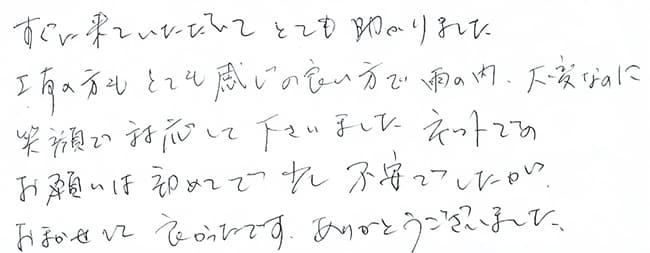 すぐに来ていただいて とても助かりました
工事の方も とても感じの良い方で 雨の内、大変なのに
笑顔で 対応して下さいました ネットでの
お願いは初めてで 少し不安でしたが、
おまかせして 良かったです。ありがとうございました。